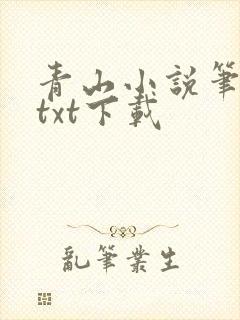 青山小説筆
txt下載
亂筆業生